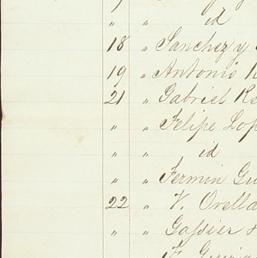 " " id
18 " Sanchez y
19 " Antonio
21 " Gabriel
" " Felipe Lop
" " id
" " Fermin Gu
22 " V. Orella
" " Gassier